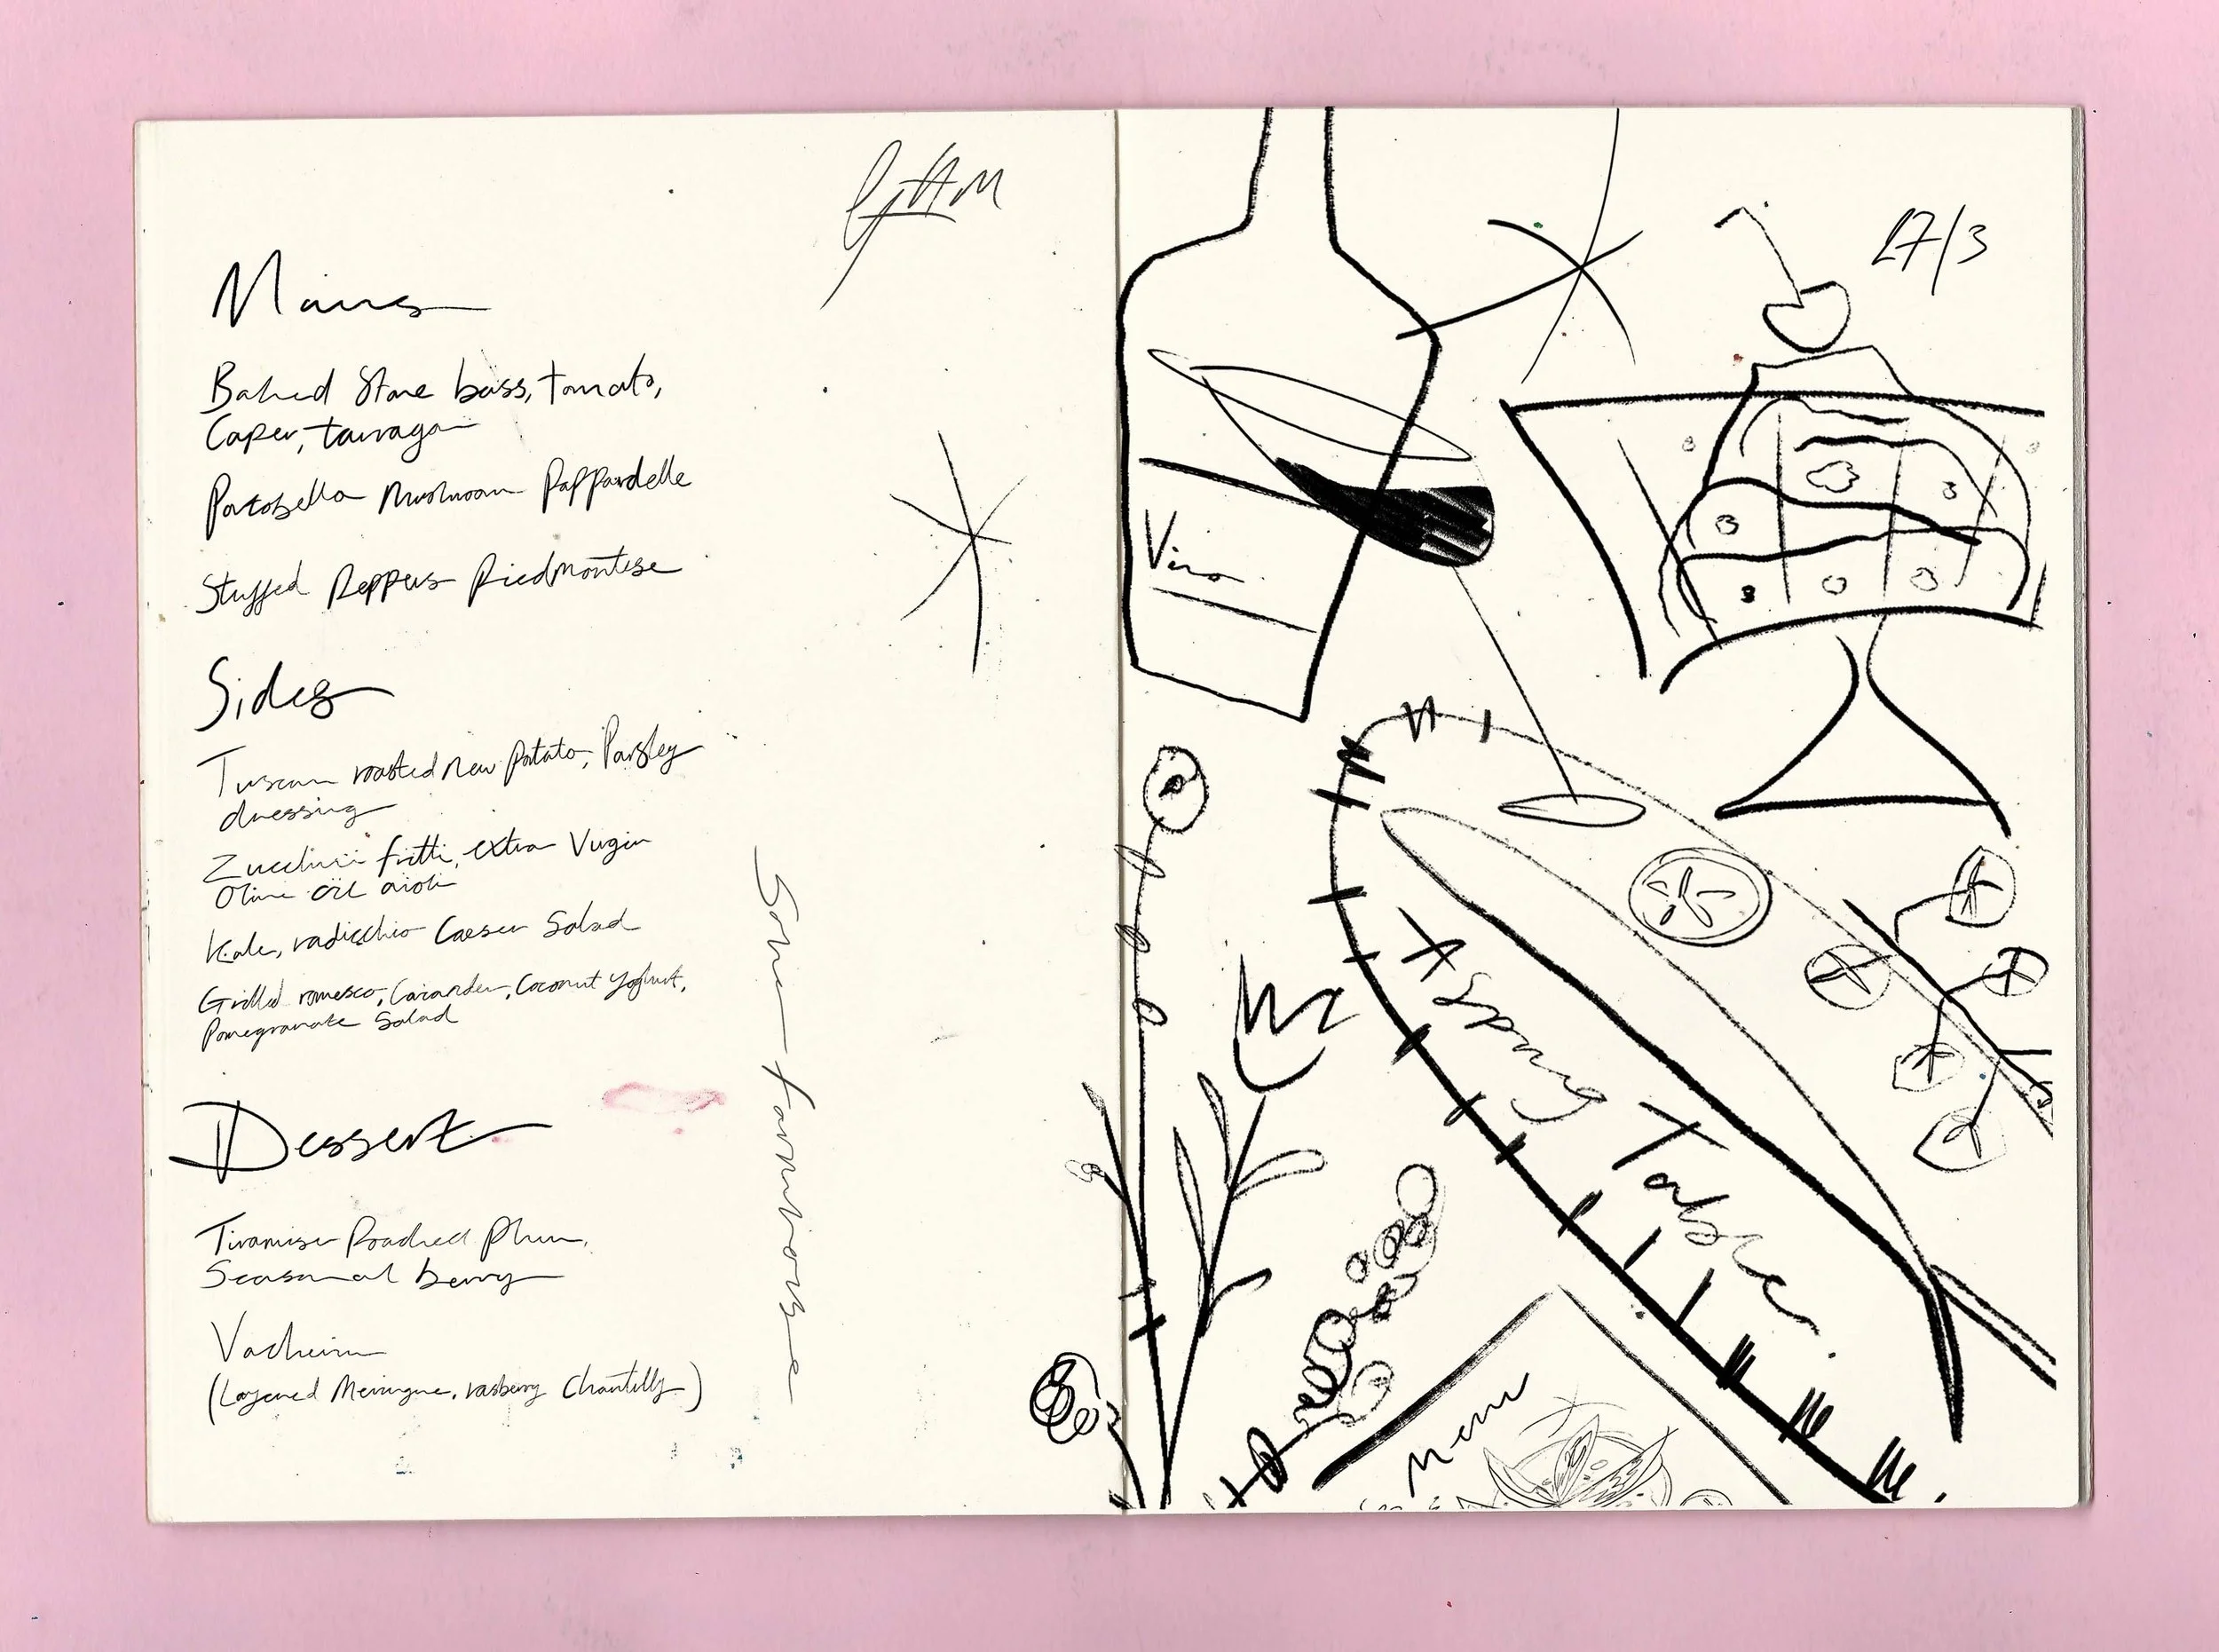 Mains
Baked Stone bass, tomato,
Caper, tarragon
Portobello Mushroom Pappardelle
Stuffed Peppers Piedmontese
Sides
Tuscan roasted new potato, Parsley
dressing
Zucchini fritti, extra Virgin
Olive oil aioli
Kale, radicchio Caeser Salad
Grilled romesco, Coconut Yoghurt,
Pomegranate Salad
Dessert
Tiramisu Poached Plum,
Seasonal berry
Vacherin
(Layered Meringue, rasberry Chantilly)
17/3
Vino
Table
Menu